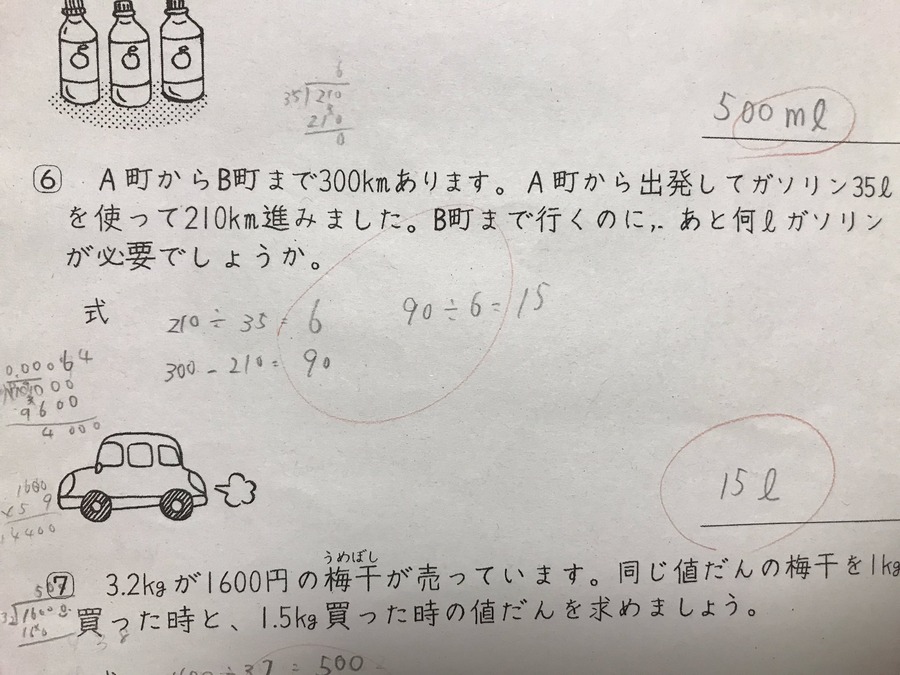 6
35 210
210
0
500ml
⑥ A町からB町まで300kmあります。A町から出発してガソリン35ℓ
を使って210km進みました。B町まで行くのに,. あと何ℓガソリン
が必要でしょうか。
式
210÷35=6
90÷6=15
300-210=90
0.00064
9600
4000
15ℓ
⑦ 3.2kgが1600円の梅干が売っています。同じ値だんの梅干を1kg
うめぼし
買った時と、1.5kg買った時の値だんを求めましょう。
=500